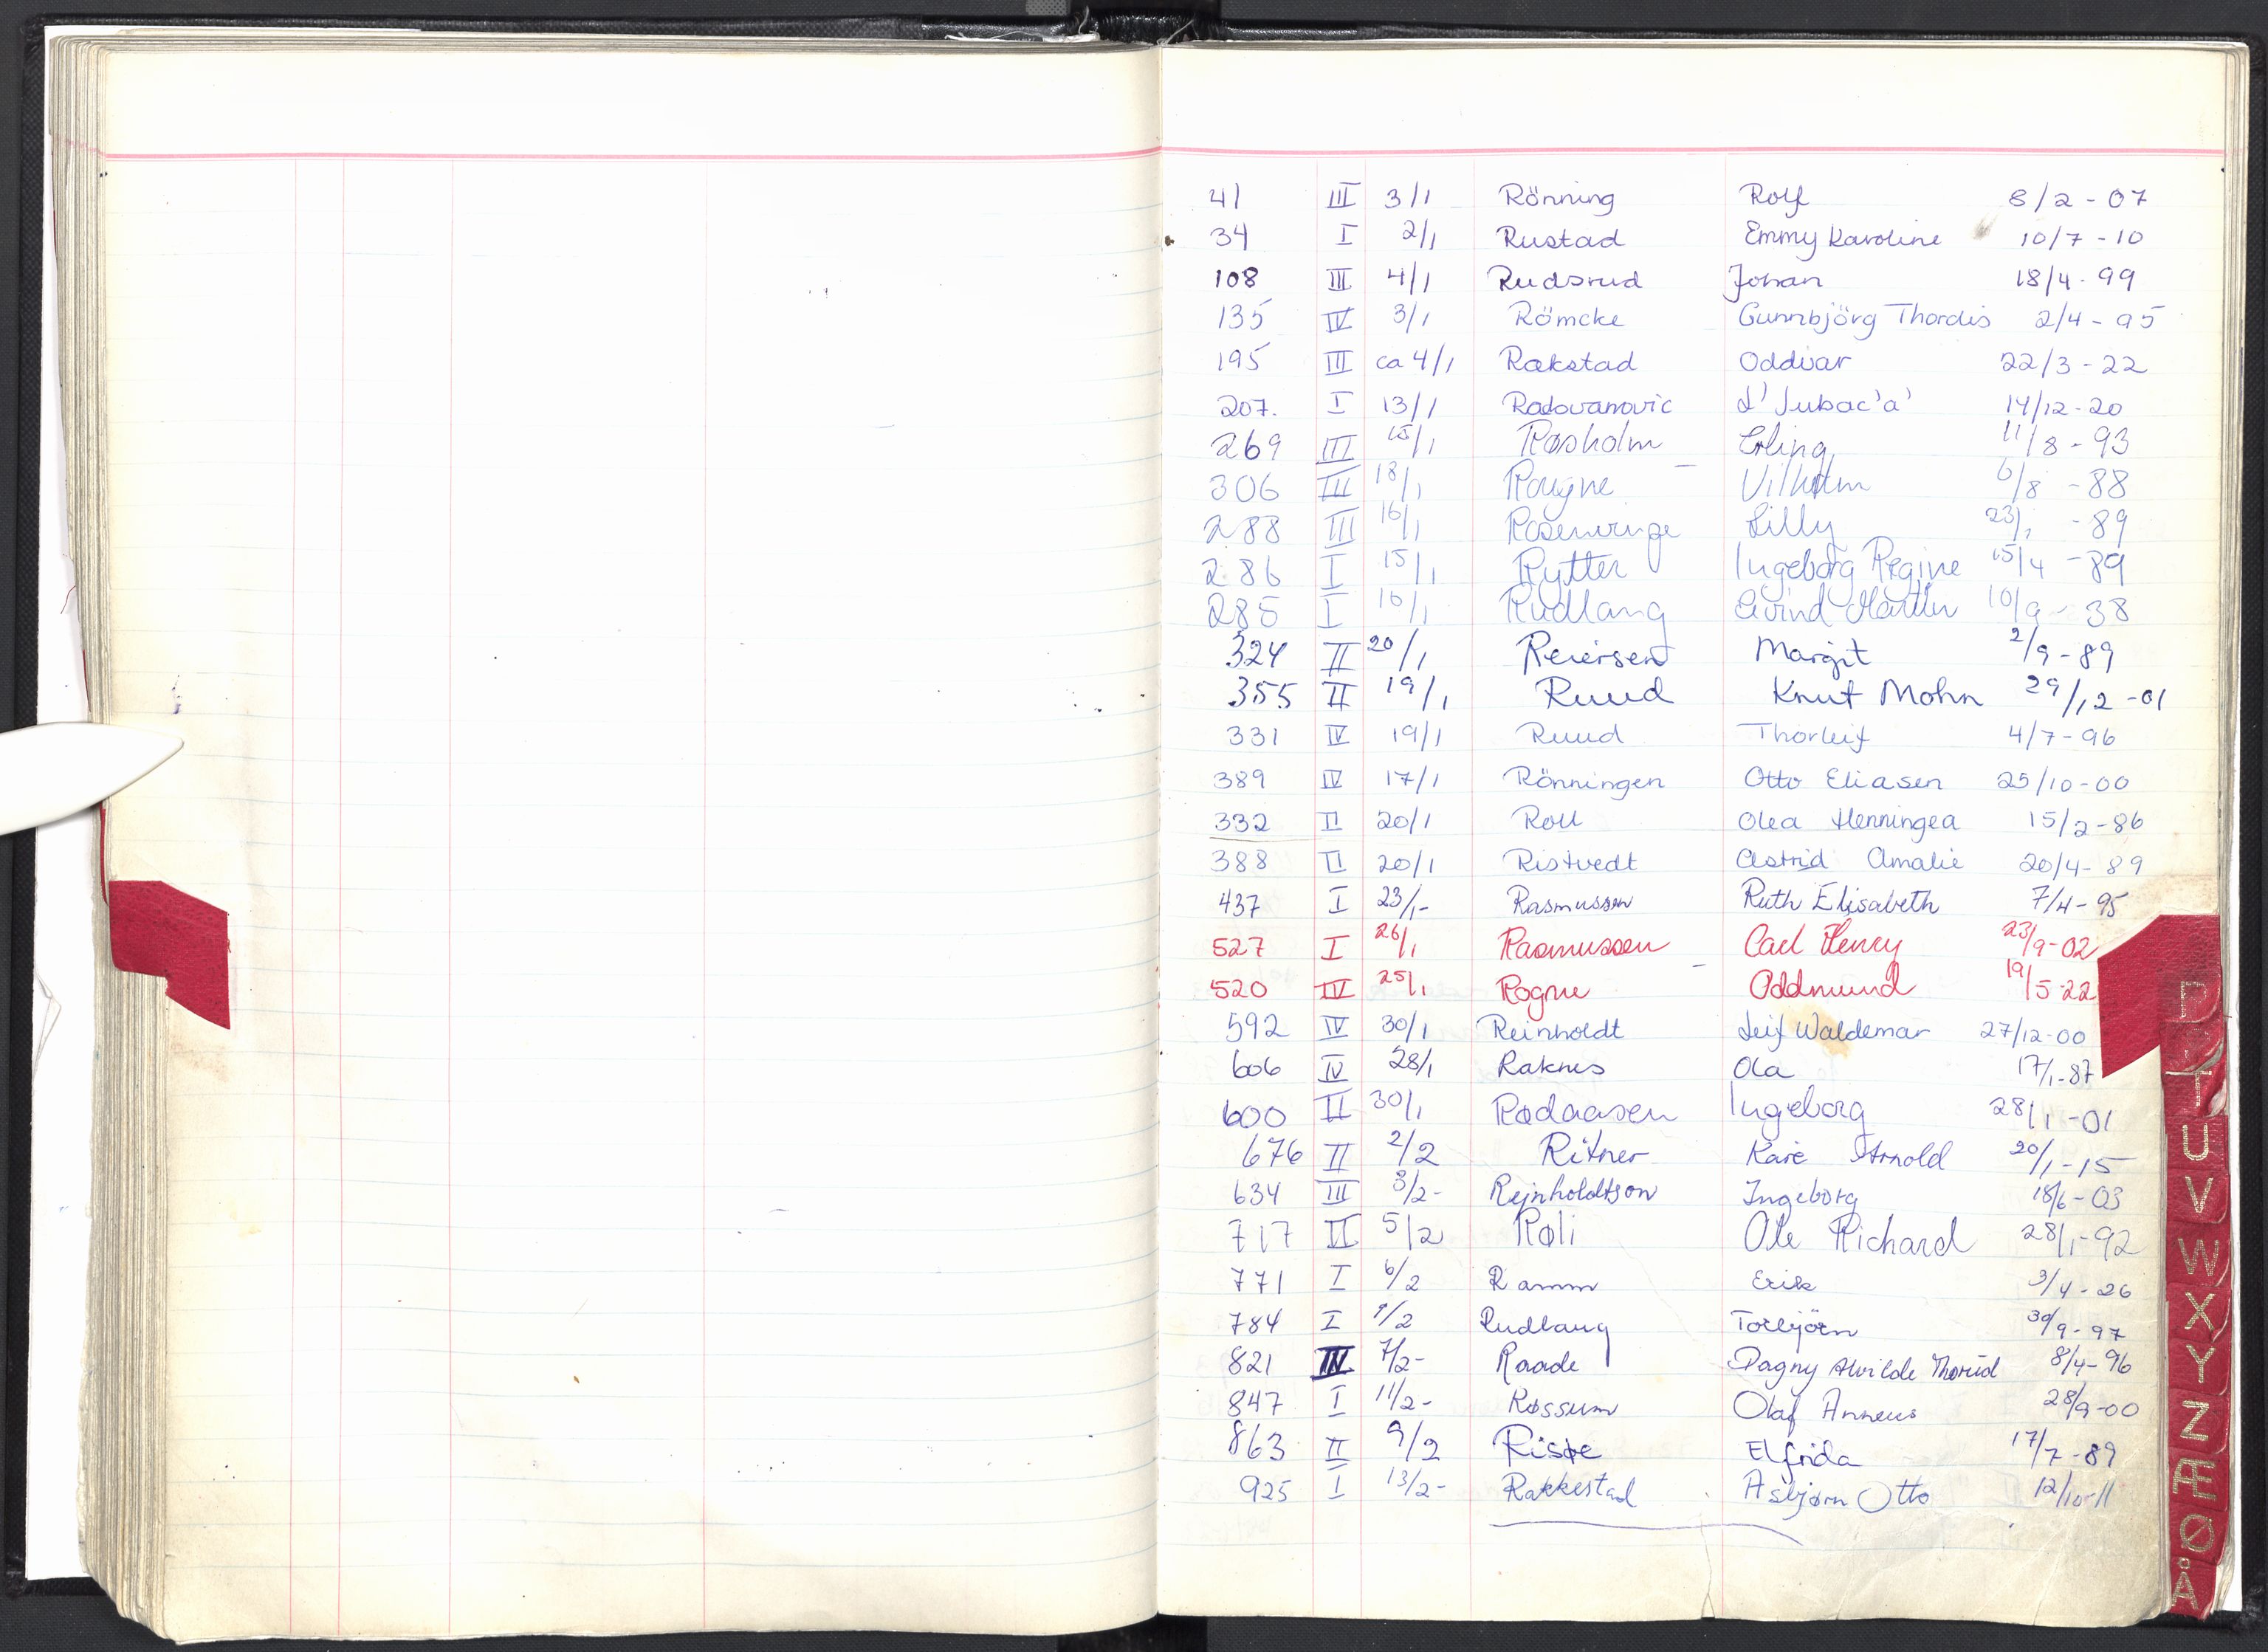 41 III 3/1 Rönning Rolf 8/2 - 07
34 I 2/1 Rustad Emmy Karoline 10/7 - 10
108 III 4/1 Rudsrud Johan 18/4 - 99
135 IV 3/1 Römcke Gunnbjörg Thordis 2/4 - 95
195 III ca 4/1 Rakstad Oddvar 22/3 - 22
207. I 13/1 Radovanovic L'Jubac'a' 14/12 - 20
269 III 15/1 Røsholm Erling 11/8 - 93
306 III 18/1 Rougne Vilhelm 6/8 - 88
288 III 16/1 Rosenvinge Lilly 23/1 - 89
286 I 15/1 Rytter Ingeborg Regine 15/4 - 89
285 I 16/1 Rudlang Eivind Martin 10/9 - 38
324 II 20/1 Reiersen Margit 2/9 - 89
355 II 19/1 Ruud Knut Mohn 29/12 - 01
331 IV 19/1 Ruud Thorleif 4/7 - 96
389 IV 17/1 Rönningen Otto Eliasen 25/10 - 00
332 II 20/1 Roll Olea Henningea 15/2 - 86
388 II 20/1 Ristvedt Astrid Amalie 20/4 - 89
437 I 23/1- Rasmussen Ruth Elisabeth 7/4 - 95
527 I 26/1 Rasmussen Carl Henry 23/9 - 02
520 IV 25/1 Rogne Oddmund 19/5-22
592 IV 30/1 Reinholdt Leif Waldemar 27/12-00
606 IV 28/1 Raknes Ola 17/1-87
600 II 30/1 Rødaasen Ingeborg 28/1 - 01
676 II 2/2 Ritner Kåre Arnold 20/1 - 15
634 III 3/2- Rejnholdtson Ingeborg 18/6 - 03
717 II 5/2 Røli Ole Richard 28/1-92
771 I 6/2 Ramm Erik 3/4 - 26
784 I 9/2 Rudlang Torbjörn 30/9 - 97
821 IV 7/2- Raade Dagny Alvilde Thorud 8/4 - 96
847 I 11/2- Røssum Olaf Anneus 28/9-00
863 II 9/2 Riste Elfrida 17/7 - 89
925 I 13/2- Rakkestad Asbjørn Otto 12/10-11
P
T
U
V
W
X
Y
Z
Æ
Ø
Å